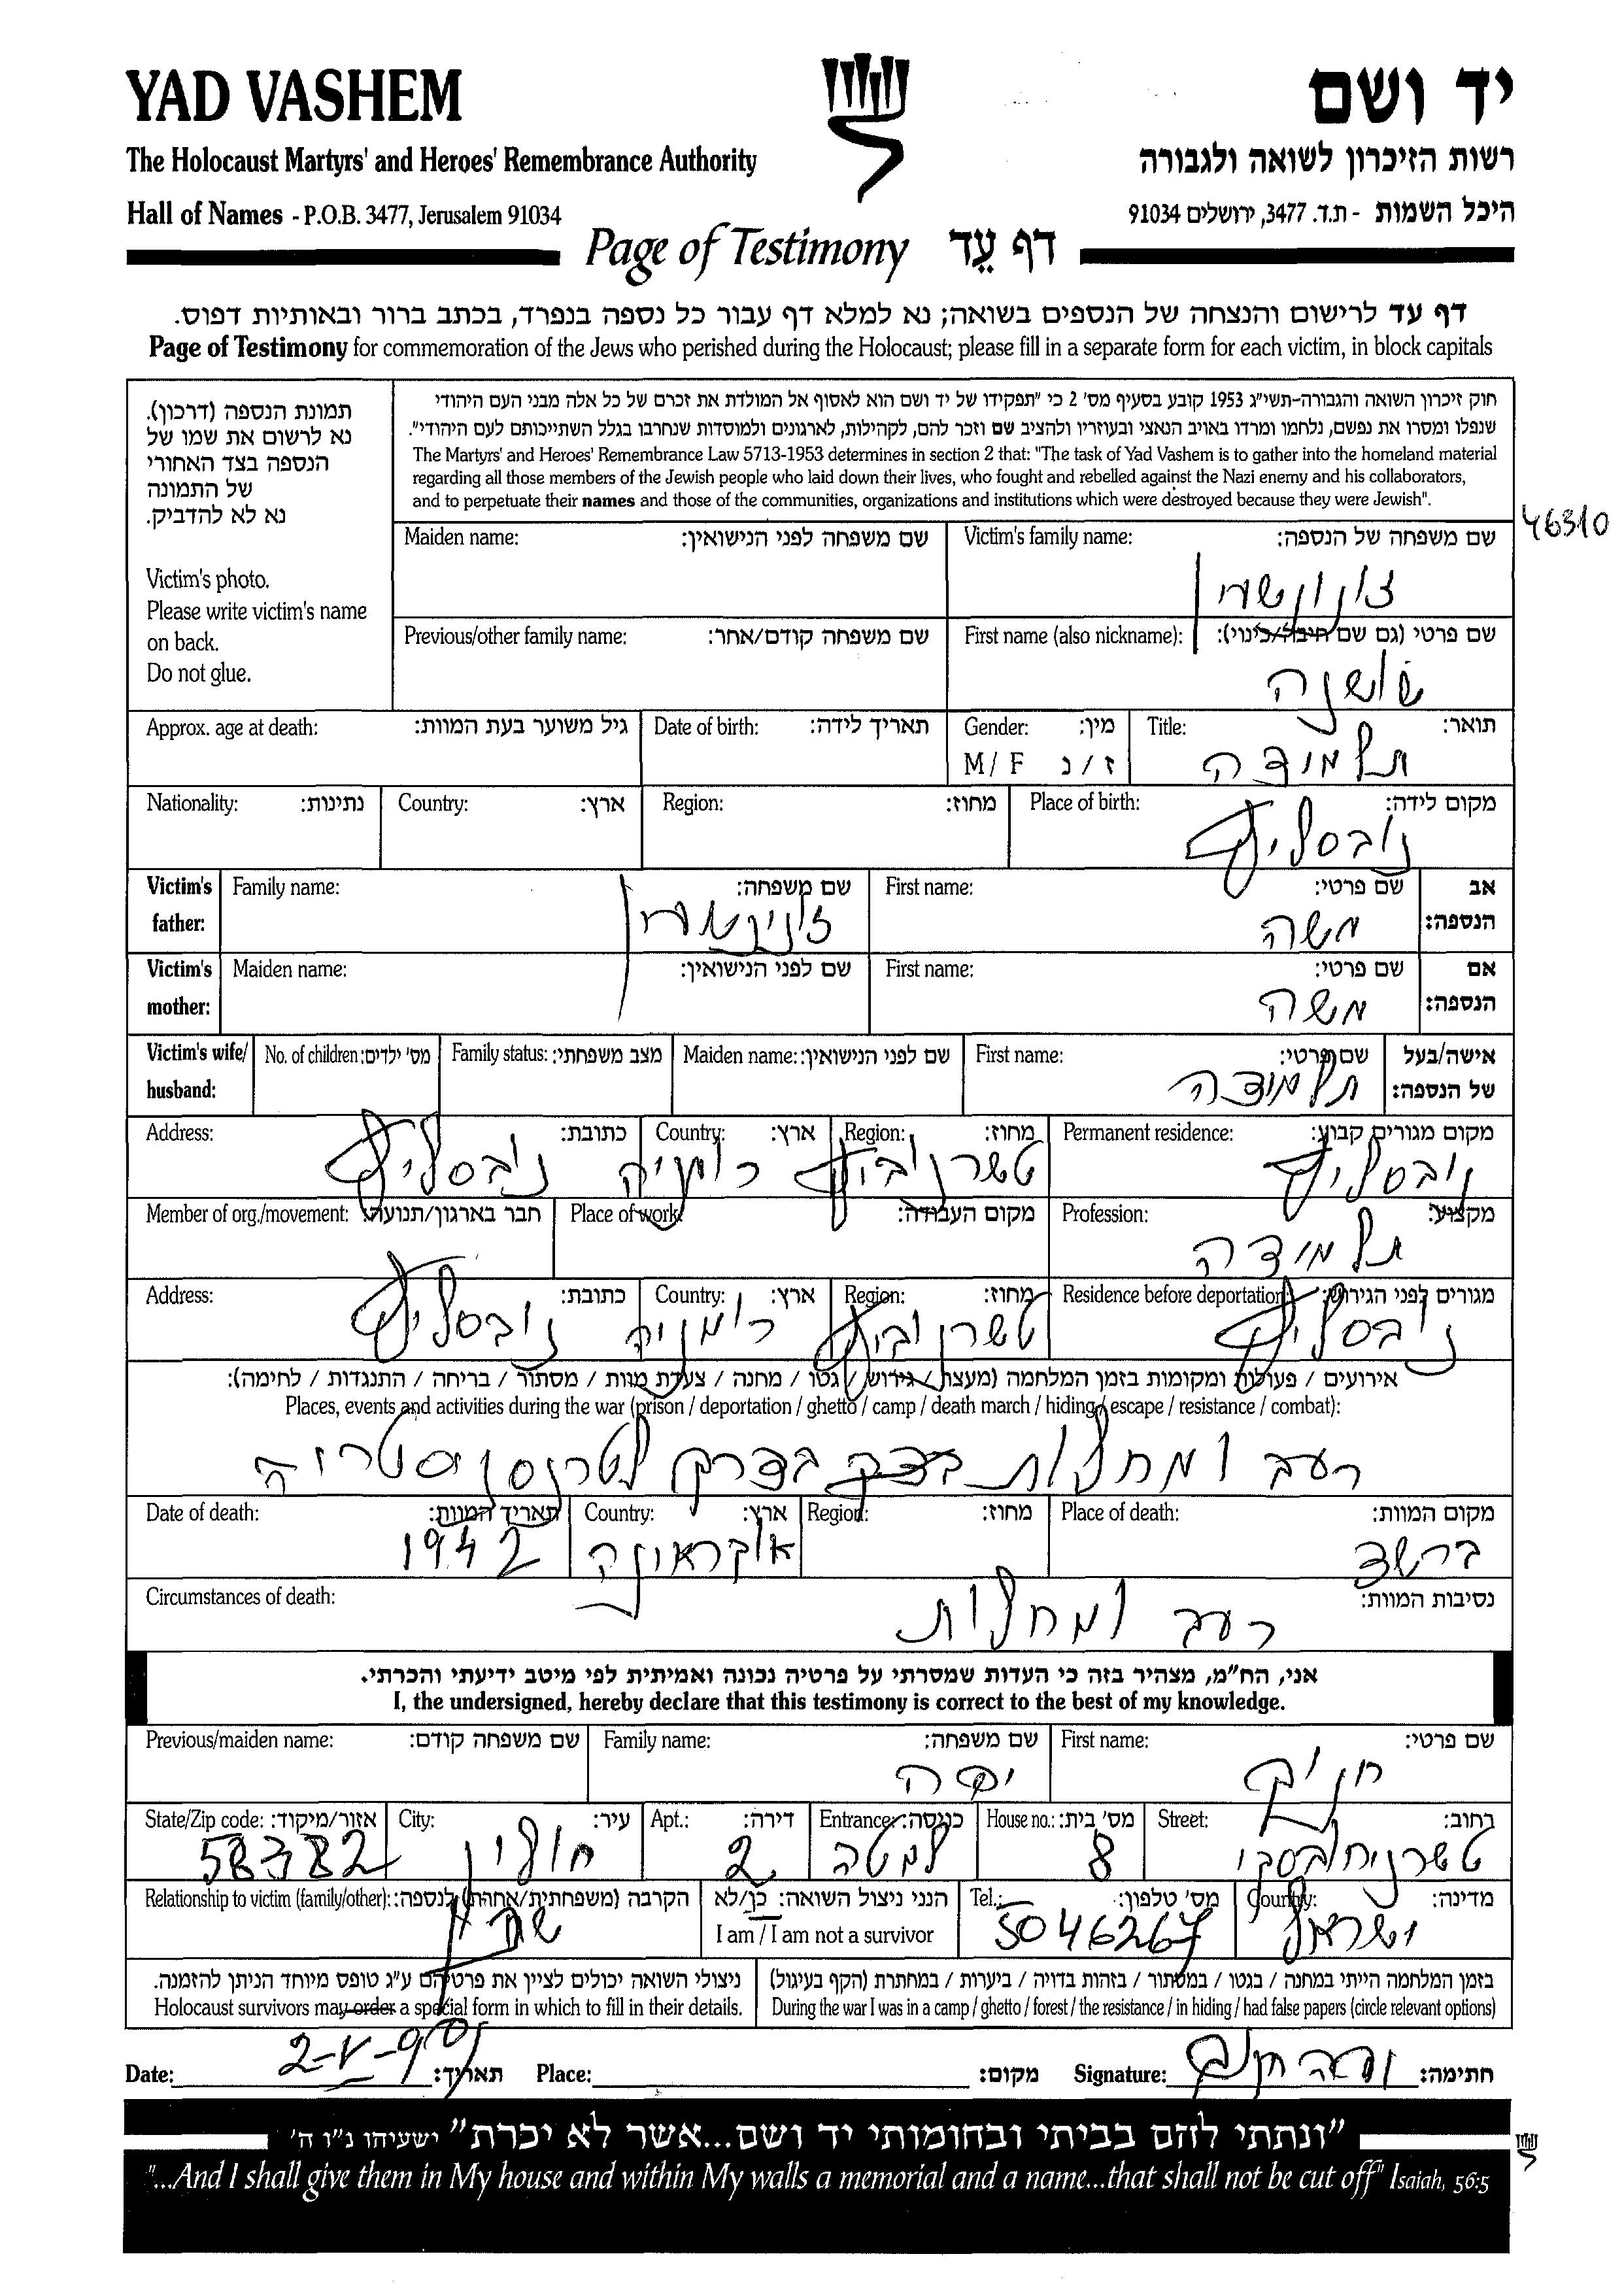 YAD VASHEM
יד ושם
The Holocaust Martyrs' and Heroes' Remembrance Authority
רשות הזיכרון לשואה ולגבורה
Hall of Names - P.O.B. 3477, Jerusalem 91034
היכל השמות - ת.ד. 3477, ירושלים 91034
Page of Testimony דף עֵד
דף עד לרישום והנצחה של הנספים בשואה; נא למלא דף עבור כל נספה בנפרד, בכתב ברור ובאותיות דפוס.
Page of Testimony for commemoration of the Jews who perished during the Holocaust; please fill in a separate form for each victim, in block capitals
תמונת הנספה (דרכון).
נא לרשום את שמו של
הנספה בצד האחורי
של התמונה
נא לא להדביק.
Victim's photo.
Please write victim's name
on back.
Do not glue.
חוק זיכרון השואה והגבורה-תשי"ג 1953 קובע בסעיף מס' 2 כי "תפקידו של יד ושם הוא לאסוף אל המולדת את זכרם של כל אלה מבני העם היהודי
שנפלו ומסרו את נפשם, נלחמו ומרדו באויב הנאצי ובעוזריו ולהציב שם וזכר להם, לקהילות, לארגונים ולמוסדות שנחרבו בגלל השתייכותם לעם היהודי".
The Martyrs' and Heroes' Remembrance Law 5713-1953 determines in section 2 that: "The task of Yad Vashem is to gather into the homeland material
regarding all those members of the Jewish people who laid down their lives, who fought and rebelled against the Nazi enemy and his collaborators,
and to perpetuate their names and those of the communities, organizations and institutions which were destroyed because they were Jewish".
46310
Victim's family name: שם משפחה של הנספה:
Maiden name: שם משפחה לפני הנישואין:
First name (also nickname): שם פרטי (גם שם חיבה/כינוי):
שושנה
Previous/other family name: שם משפחה קודם/אחר:
Title: תואר:
תלמודה
Gender: מין:
M / F ז / נ
Date of birth: תאריך לידה:
Approx. age at death: גיל משוער בעת המוות:
Place of birth: מקום לידה:
נובסליץ
Region: מחוז:
Country: ארץ:
Nationality: נתינות:
Victim's father: אב הנספה:
First name: שם פרטי:
משה
Family name: שם משפחה:
Victim's mother: אם הנספה:
First name: שם פרטי:
משה
Maiden name: שם לפני הנישואין:
Victim's wife/ husband: אישה/בעל של הנספה:
First name: שם פרטי:
תלמודה
Maiden name: שם לפני הנישואין:
Family status: מצב משפחתי:
No. of children: מס' ילדים:
Permanent residence: מקום מגורים קבוע:
נובסליץ
Region: מחוז:
טשרנוביץ
Country: ארץ:
רומניה
Address: כתובת:
נובסליץ
Profession: מקצוע:
תלמודה
Place of work: מקום העבודה:
Member of org./movement: חבר בארגון/תנועה:
Residence before deportation: מגורים לפני הגירוש:
נובסליץ
Region: מחוז:
טשרנוביץ
Country: ארץ:
רומניה
Address: כתובת:
נובסליץ
אירועים / פעולות ומקומות בזמן המלחמה (מעצר / גירוש / גטו / מחנה / צעדת מוות / מסתור / בריחה / התנגדות / לחימה):
Places, events and activities during the war (prison / deportation / ghetto / camp / death march / hiding / escape / resistance / combat):
רעב ומחלות בדרק לטרנסניסטריה
Place of death: מקום המוות:
ברשד
Region: מחוז:
Country: ארץ:
Date of death: תאריך המוות:
1942
Circumstances of death: נסיבות המוות:
רעב ומחלות
אני, הח"מ, מצהיר בזה כי העדות שמסרתי על פרטיה נכונה ואמיתית לפי מיטב ידיעתי והכרתי.
I, the undersigned, hereby declare that this testimony is correct to the best of my knowledge.
First name: שם פרטי:
Family name: שם משפחה:
יפה
Previous/maiden name: שם משפחה קודם:
Street: רחוב:
טשרניחובסקי
House no.: מס' בית:
8
Entrance: כניסה:
למטה
Apt.: דירה:
2
City: עיר:
חולון
State/Zip code: אזור/מיקוד:
58382
Country: מדינה:
ישראל
Tel.: מס' טלפון:
5046267
הנני ניצול השואה: כן/לא
I am / I am not a survivor
Relationship to victim (family/other): הקרבה (משפחתית/אחרת) לנספה:
בזמן המלחמה הייתי במחנה / בגטו / במסתור / בזהות בדויה / ביערות / במחתרת (הקף בעיגול)
During the war I was in a camp / ghetto / forest / the resistance / in hiding / had false papers (circle relevant options)
ניצולי השואה יכולים לציין את פרטיהם ע"ג טופס מיוחד הניתן להזמנה.
Holocaust survivors may order a special form in which to fill in their details.
Date: תאריך: Place: מקום: Signature: חתימה:
"ונתתי להם בביתי ובחומותי יד ושם...אשר לא יכרת" ישעיהו נ"ו ה'
"...And I shall give them in My house and within My walls a memorial and a name...that shall not be cut off" Isaiah, 56:5